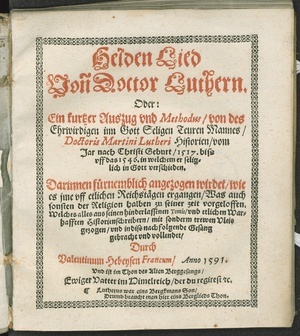 Helden Lied
Von Doctor Luthern.
Oder:
Ein kurtzer Auszug vnd Methodus / von des
Ehrwirdigen im Gott Seligen Teuren Mannes /
Doctoris Martini Lutheri Historien / vom
Jar nach Christi Geburt / 1517. biss
vff das 1546. in welchem er selig-
lich in Gott verschieden.
Darinnen fürnemblich angezogen wirdet / wie
es jme vff etlichen Reichstägen ergangen / Was auch
sonsten der Religion halben zu seiner zeit vorgeloffen.
Welches alles aus seinen hinderlassenen Tomis / vnd etlichen War-
hafften Historienschreibern / mit sondern trewen Vleis
gezogen / vnd in diss nach folgende Gesang
gebracht vnd vollendet /
Durch
Valentinum Hebeysen Francum / Anno 1591.
Vnd ist im Thon des Alten Berggesangs /
Ewiger Vatter im Himelreich / der du regirest &c.
Lutherus war eins Bergkmans Son /
Drumb braucht man hier eins Berglieds Thon.